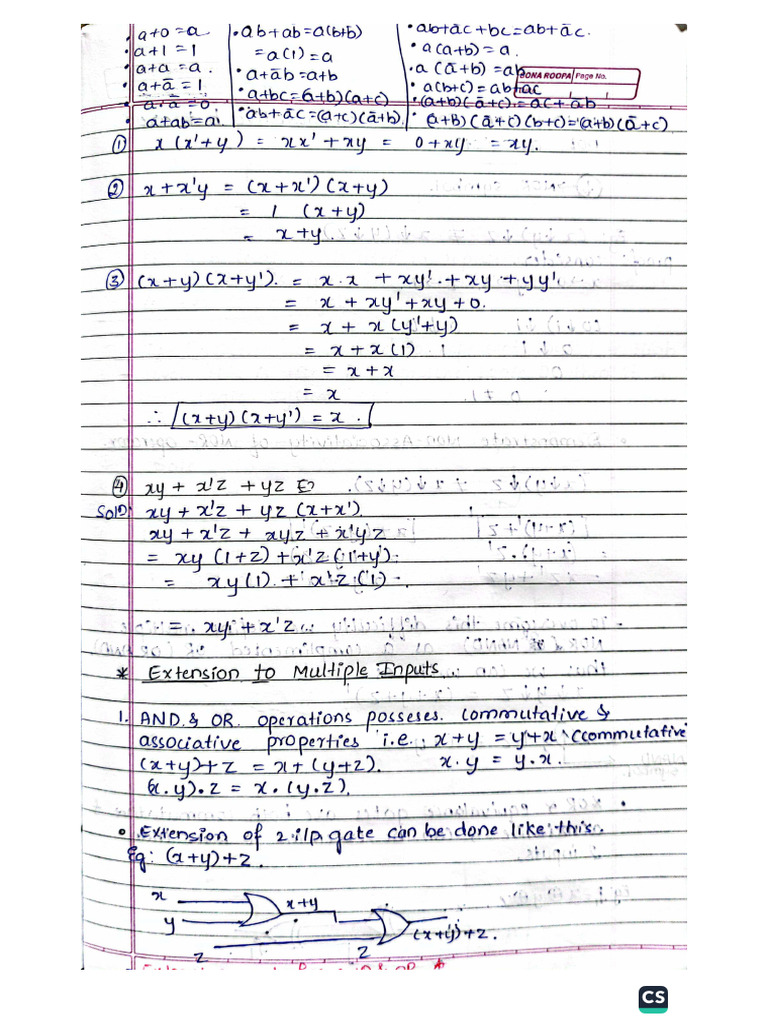 • a+0 = a
• a+1 = 1
• a+a = a.
• a+ā = 1
• a.a = 0
• a+ab = a
• ab+ab = a(b+b)
= a(1) = a
• a+āb = a+b
• a+bc = (a+b)(a+c)
• ab+āc = (a+c)(ā+b).
• ab+āc+bc = ab+āc.
• a(a+b) = a.
• a(ā+b) = ab
• a(b+c) = ab+ac
• (a+b)(ā+c) = ac+āb
• (a+B)(ā+c)(b+c) = (a+b)(ā+c)
DONA ROOPA Page No.
① x(x'+y) = xx'+xy = 0+xy = xy.
② x+x'y = (x+x')(x+y)
= 1 (x+y)
= x+y.
③ (x+y)(x+y'). = x.x + xy' + xy + yy'
= x + xy' + xy + 0.
= x + x(y'+y)
= x + x(1)
= x + x
= x
∴ (x+y)(x+y') = x.
④ xy + x'z + yz
Soln: xy + x'z + yz (x+x').
xy + x'z + xyz + x'yz
= xy(1+z) + x'z(1+y).
= xy(1) + x'z(1).
= xy + x'z.
* Extension to Multiple Inputs
1. AND & OR operations posseses. commutative &
associative properties i.e: x+y = y+x (commutative
(x+y)+z = x+(y+z). x.y = y.x.
(x.y).z = x.(y.z).
• Extension of 2 i/p gate can be done like this.
Eg: (x+y)+z.
x
y
x+y
z
z
(x+y)+z.
CS